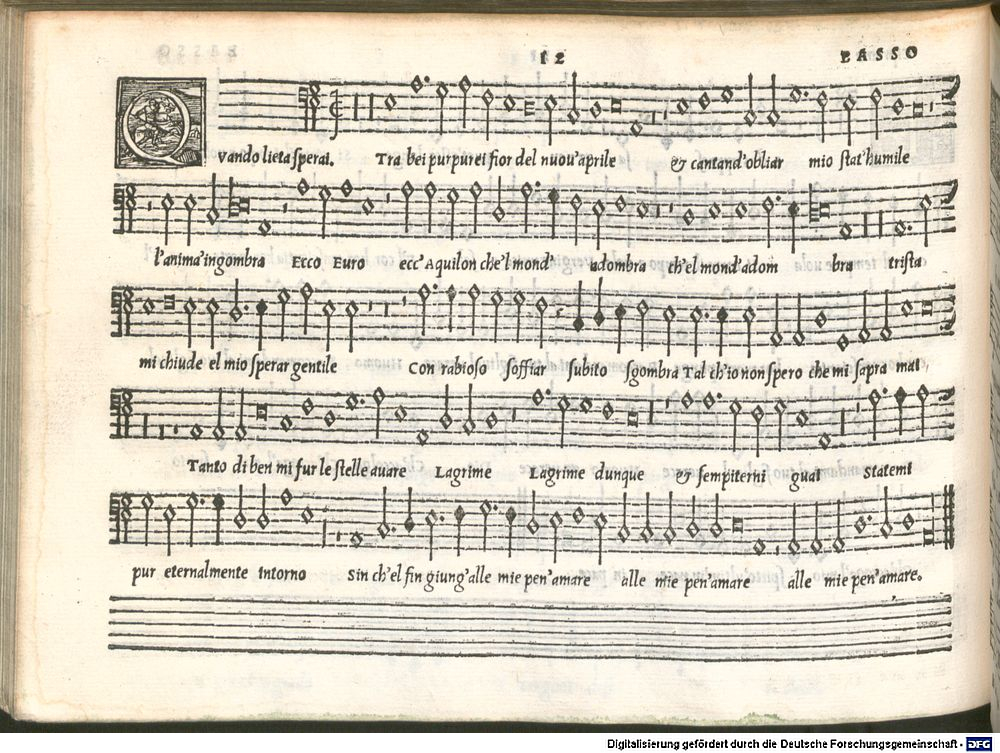 12 BASSO
QVando lieta sperai. Tra bei purpurei fior del nuou'aprile & cantand'obliar mio stat'humile
l'anima'ingombra Ecco Euro ecc'Aquilon che'l mond' adombra ch'el mond'adom bra trista
mi chiude el mio sperar gentile Con rabioso soffiar subito sgombra Tal ch'io non spero che mi sapra mai,
Tanto di ben mi fur le stelle auare Lagrime Lagrime dunque & sempiterni guai Statemi
pur eternalmente intorno Sin ch'el fin giung'alle mie pen'amare alle mie pen'amare alle mie pen'amare.
Digitalisierung gefördert durch die Deutsche Forschungsgemeinschaft - DFG